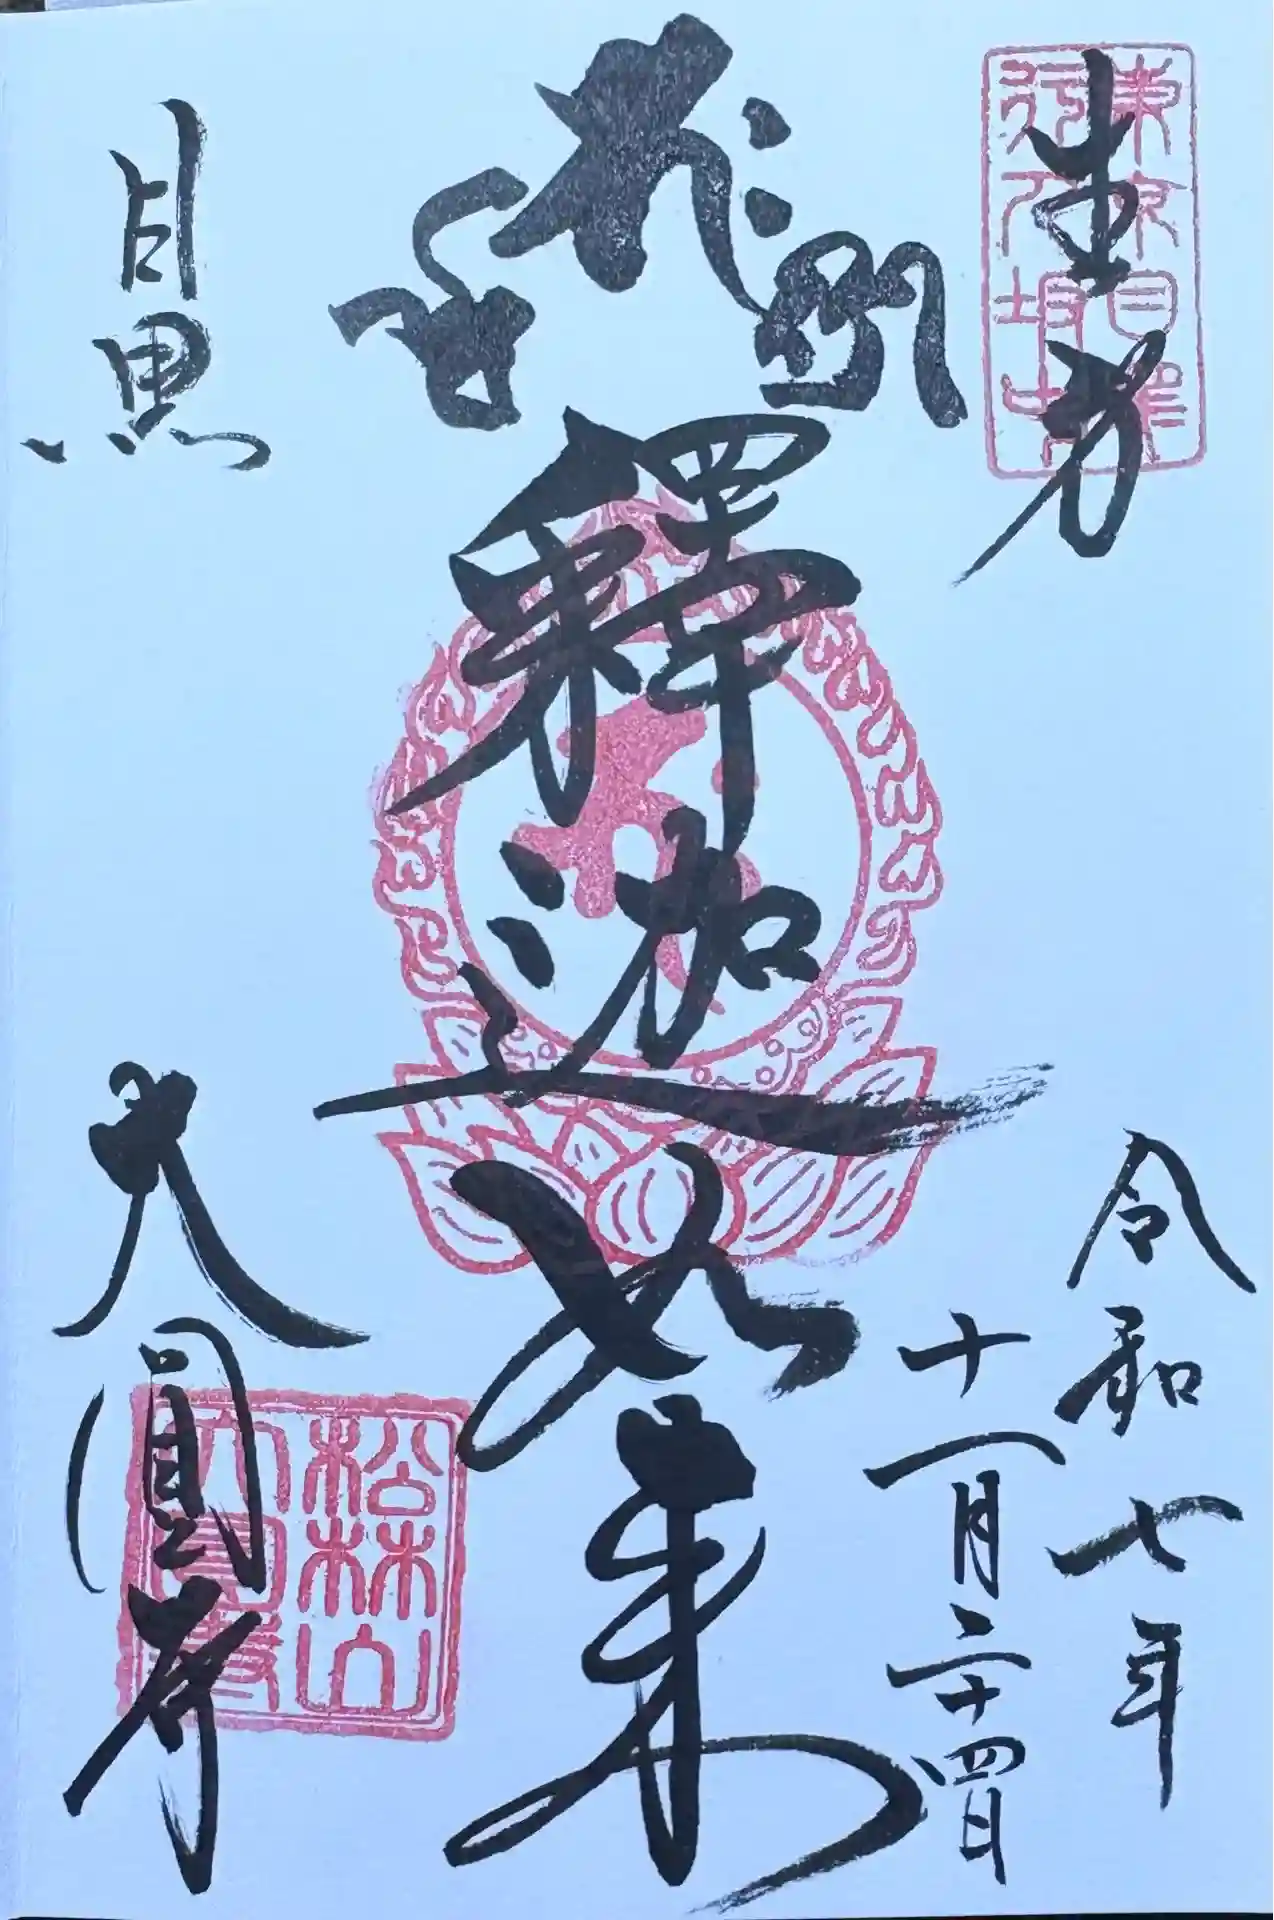 奉拝
東京目黒
行人坂上
令和七年
十一月二十四日
釋迦如来
目黒
大圓寺
松林山
大圓寺